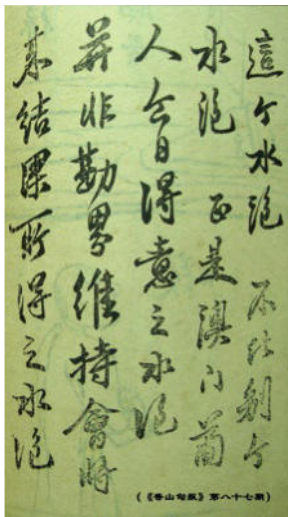 這个水泡 不比别个
水泡 正是澳门葡
人今日得意之水泡
并非勘界維持會将
来結果所得之水泡
(《香山旬报》第八十七期)